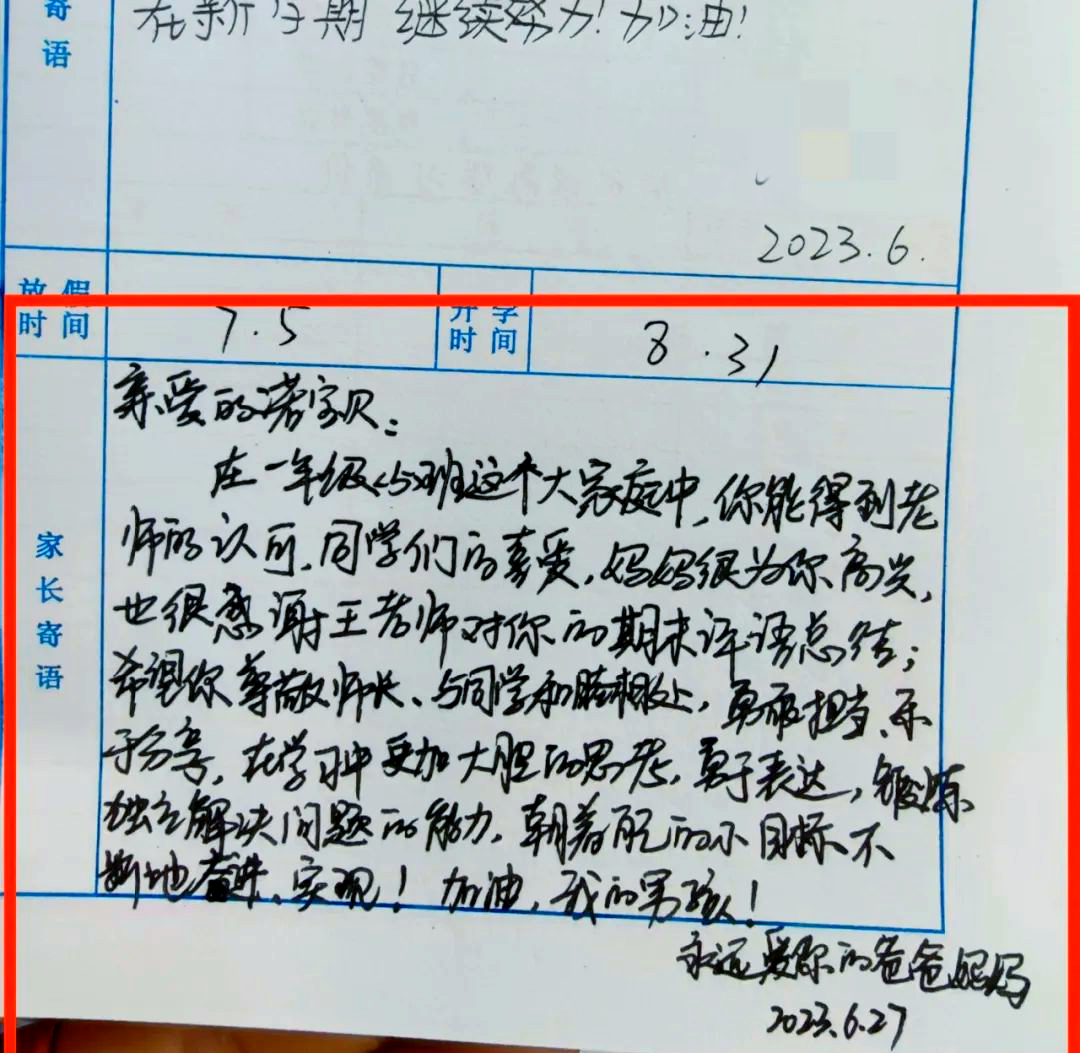 寄语
在新学期继续努力!加油!
2023.6.
放假时间 7.5 开学时间 8.31
家长寄语
亲爱的诺宝贝:
在一年级(5)班这个大家庭中,你能得到老
师的认可,同学们的喜爱,妈妈很为你高兴,
也很感谢王老师对你的期末评语总结;
希望你尊敬师长、与同学和睦相处,勇敢担当、乐
于分享,在学习中更加大胆的思考,勇于表达,锻炼
独立解决问题的能力,朝着自己的小目标不
断地奋进、实现!加油,我的男孩!
永远爱你的爸爸妈妈
2023.6.27